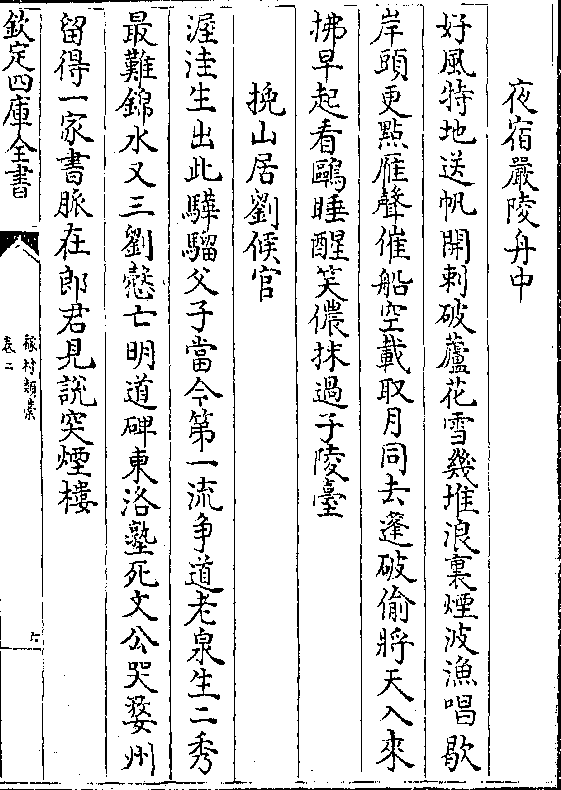 夜宿嚴陵舟中
好風特地送帆開刺破蘆花雪幾堆浪裏煙波漁唱歇
岸頭更點雁聲催船空載取月同去蓬破偷將天入來
拂早起看鷗睡醒笑儂抹過子陵臺
挽山居劉候官
渥洼生出此驊騮父子當今第一流争道老泉生二秀
最難錦水又三劉憗亡明道碑東洛塾死文公哭婺州
留得一家書脈在郎君見説突煙樓
欽定四庫全書
稼村類藁
卷二